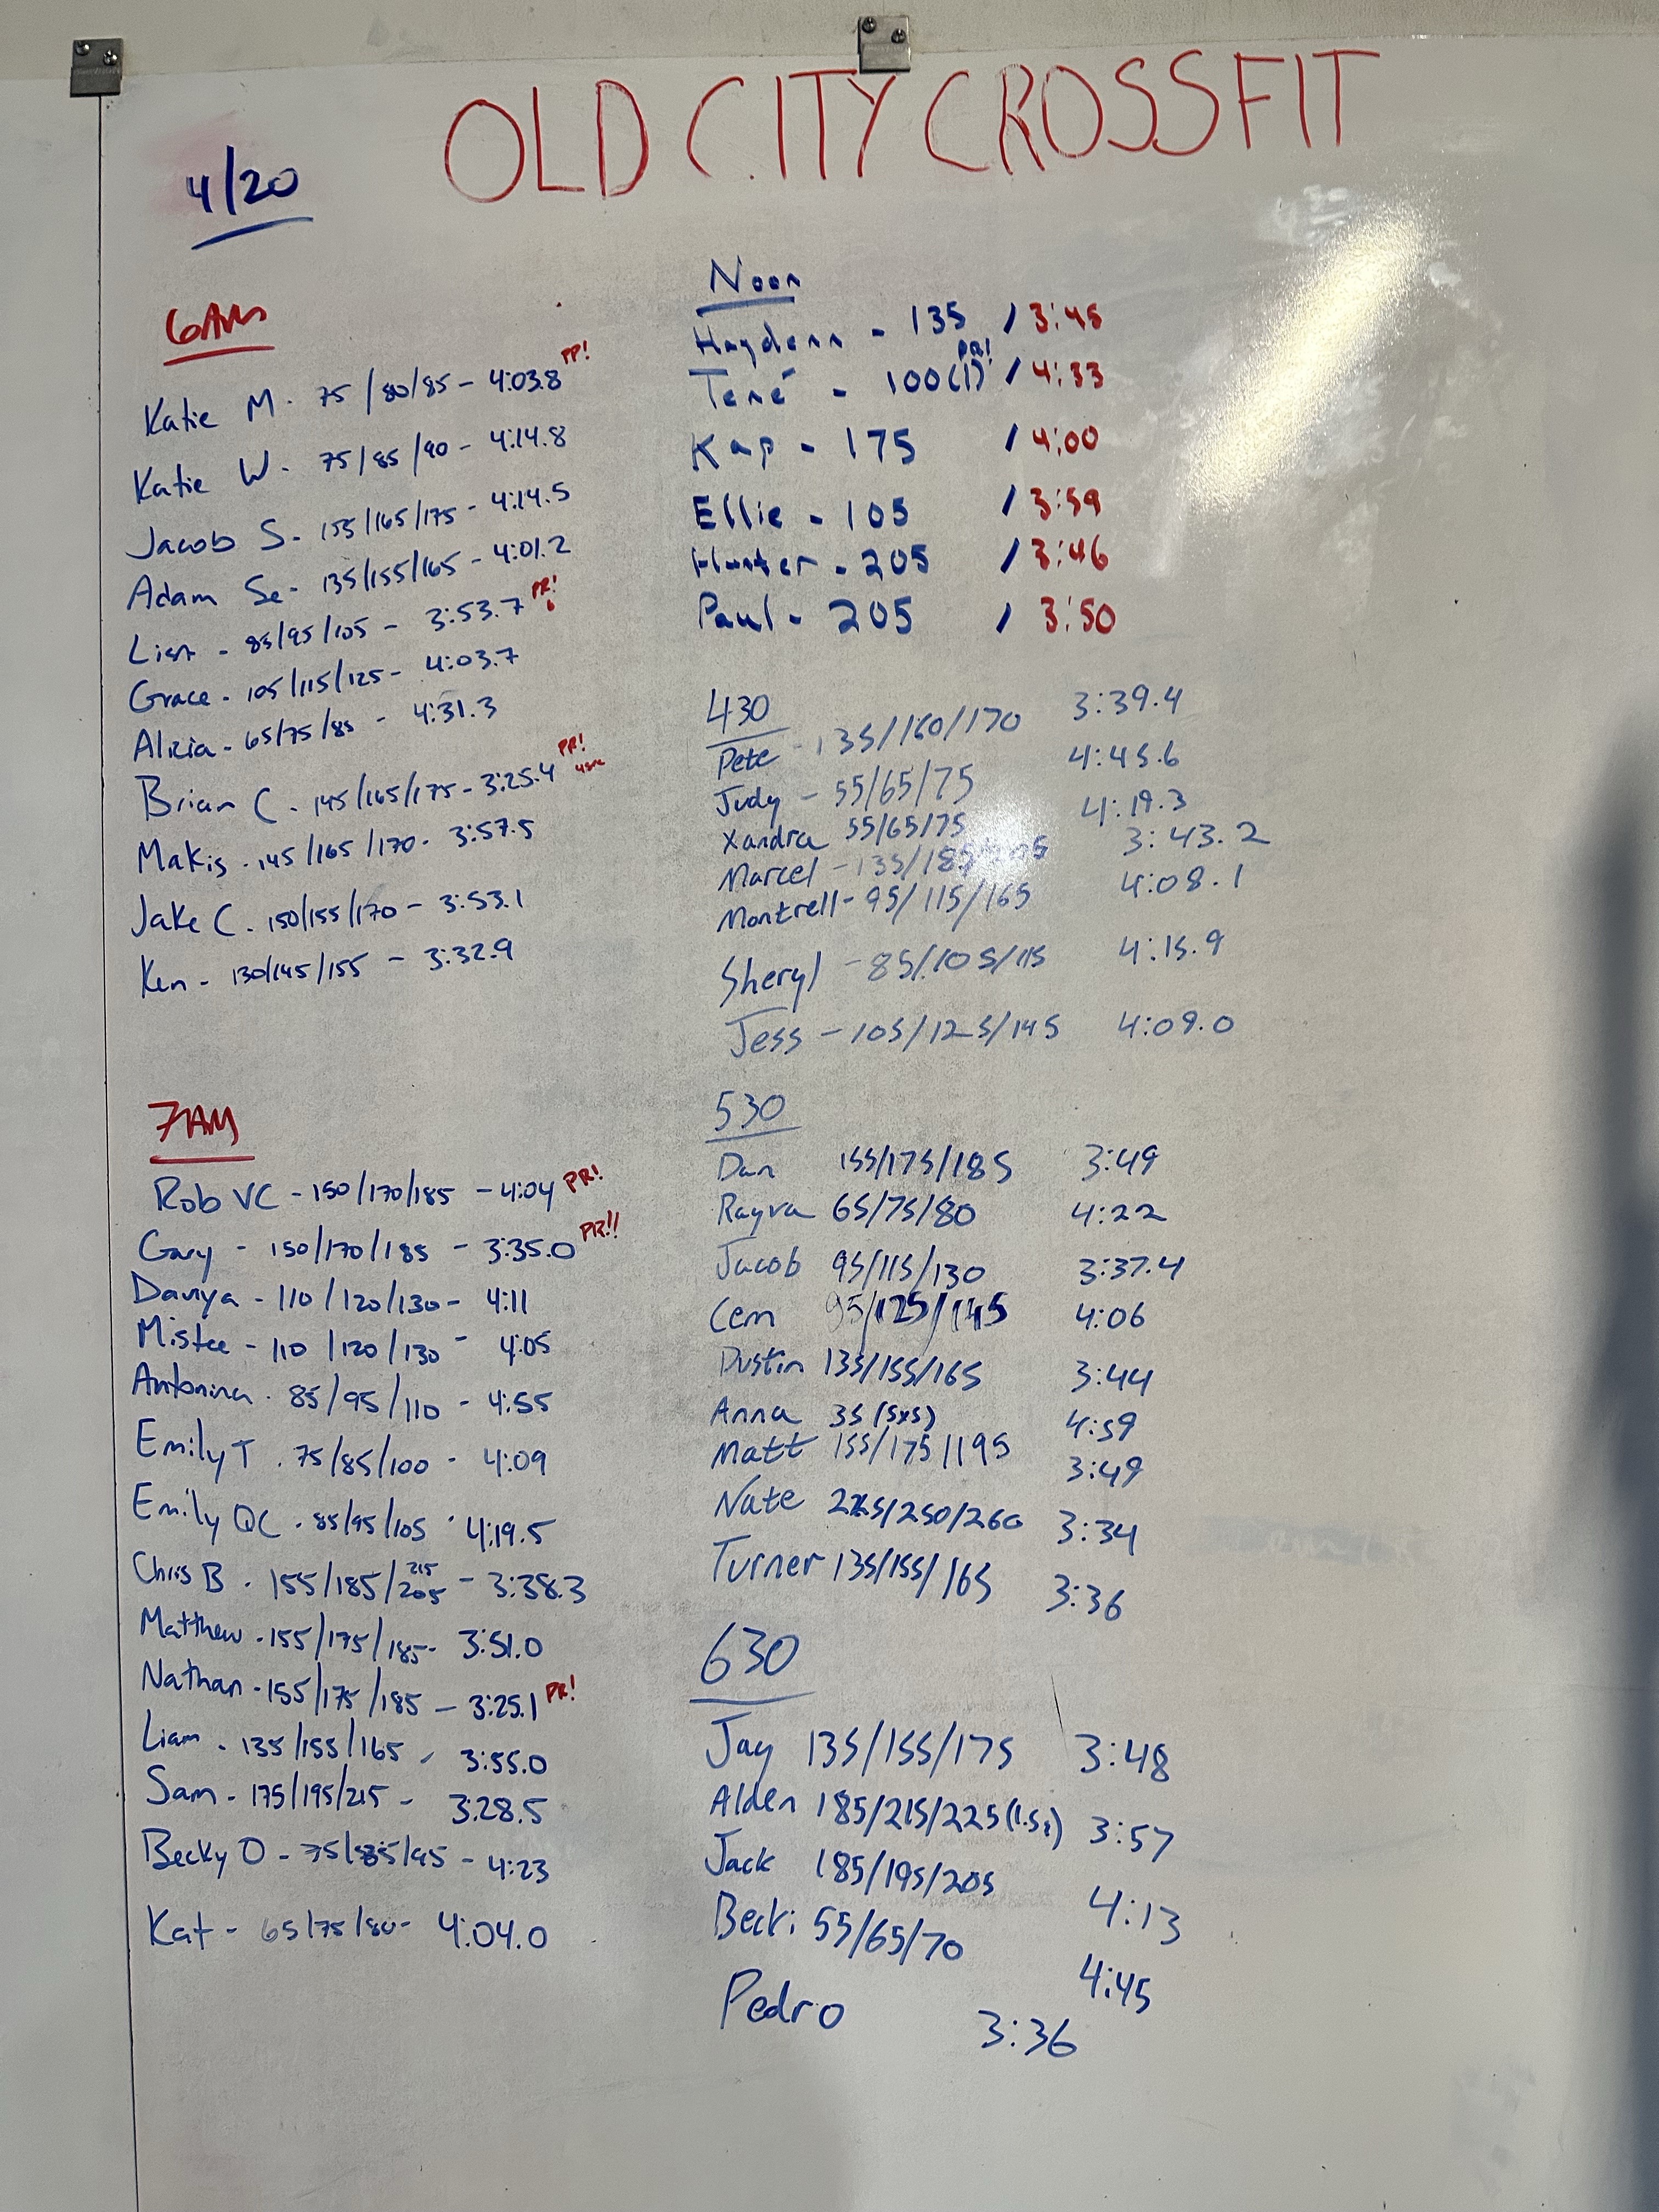 OLD CITY CROSSFIT
4/20
6AM
Katie M. 75/80/85 - 4:03.8 PP!
Katie W. 75/85/90 - 4:14.8
Jacob S. 155/165/175 - 4:14.5
Adam Se - 135/155/165 - 4:01.2
Lisa - 85/95/105 - 3:53.7 PR!
Grace - 105/115/125 - 4:03.7
Alicia - 65/75/85 - 4:31.3
Brian C. 145/165/175 - 3:25.4 PR!
Makis - 145/165/170 - 3:57.5
Jake C. 150/155/170 - 3:53.1
Ken - 130/145/155 - 3:32.9
7AM
Rob VC - 150/170/185 - 4:04 PR!
Gary - 150/170/185 - 3:35.0 PR!!
Daviya - 110/120/130 - 4:11
Mistee - 110/120/130 - 4:05
Antonina - 85/95/110 - 4:55
Emily T. 75/85/100 - 4:09
Emily QC - 85/95/105 - 4:19.5
Chris B. 155/185/205 215 - 3:38.3
Matthew - 155/175/185 - 3:51.0
Nathan - 155/175/185 - 3:25.1 PR!
Liam - 135/155/165 - 3:55.0
Sam - 175/195/215 - 3:28.5
Becky O - 75/85/95 - 4:23
Kat - 65/75/80 - 4:04.0
Noon
Haydenn - 135 / 3:45
Tené - 100(1) PR! / 4:33
Kap - 175 / 4:00
Ellie - 105 / 3:59
Hunter - 205 / 3:46
Paul - 205 / 3:50
430
Pete - 135/160/170 3:39.4
Judy - 55/65/75 4:45.6
Xandra 55/65/75 4:19.3
Marcel - 135/185/205 3:43.2
Montrell - 95/115/165 4:08.1
Sheryl - 85/105/115 4:15.9
Jess - 105/125/145 4:09.0
530
Dan 155/175/185 3:49
Rayva 65/75/80 4:22
Jacob 95/115/130 3:37.4
Cem 95/125/145 4:06
Dustin 135/155/165 3:44
Anna 35 (5x5) 4:59
Matt 155/175/195 3:49
Nate 225/250/260 3:34
Turner 135/155/165 3:36
630
Jay 135/155/175 3:48
Alden 185/215/225 3:57
Jack 185/195/205 4:13
Becki 55/65/70 4:45
Pedro 3:36